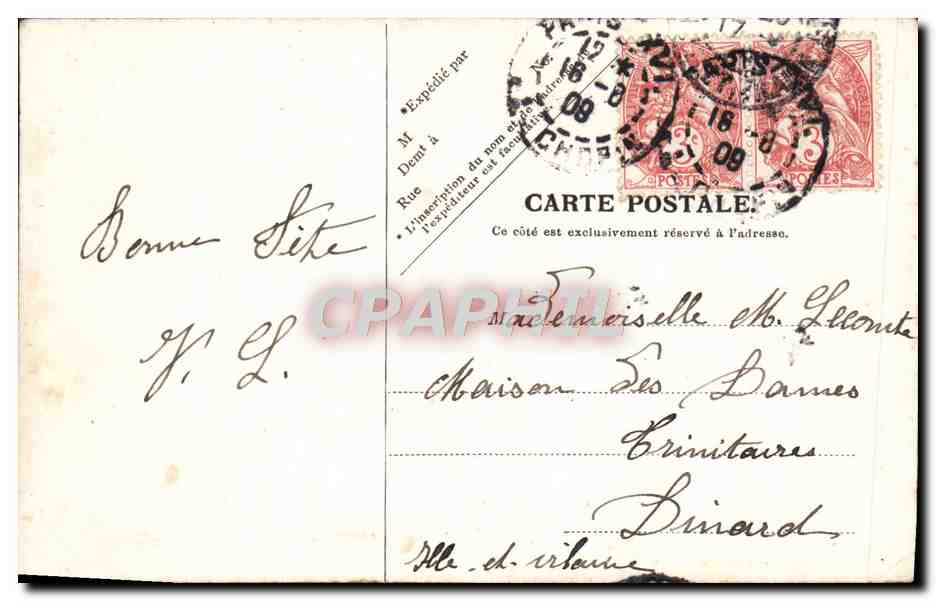 Expédié par
M
Demt à
Rue
No.
L'inscription du nom et de l'adresse de
l'expéditeur est facultative
CARTE POSTALE
Ce côté est exclusivement réservé à l'adresse.
Bonne Fête
L.
CPAPHIL
Mademoiselle M. Lecomte
Maison des Dames
Trinitaires
Dinard
Ille-et-vilaine
12
16 - 8
09
CHOPIN
16 - 8
09
3
POSTES
3
POSTES